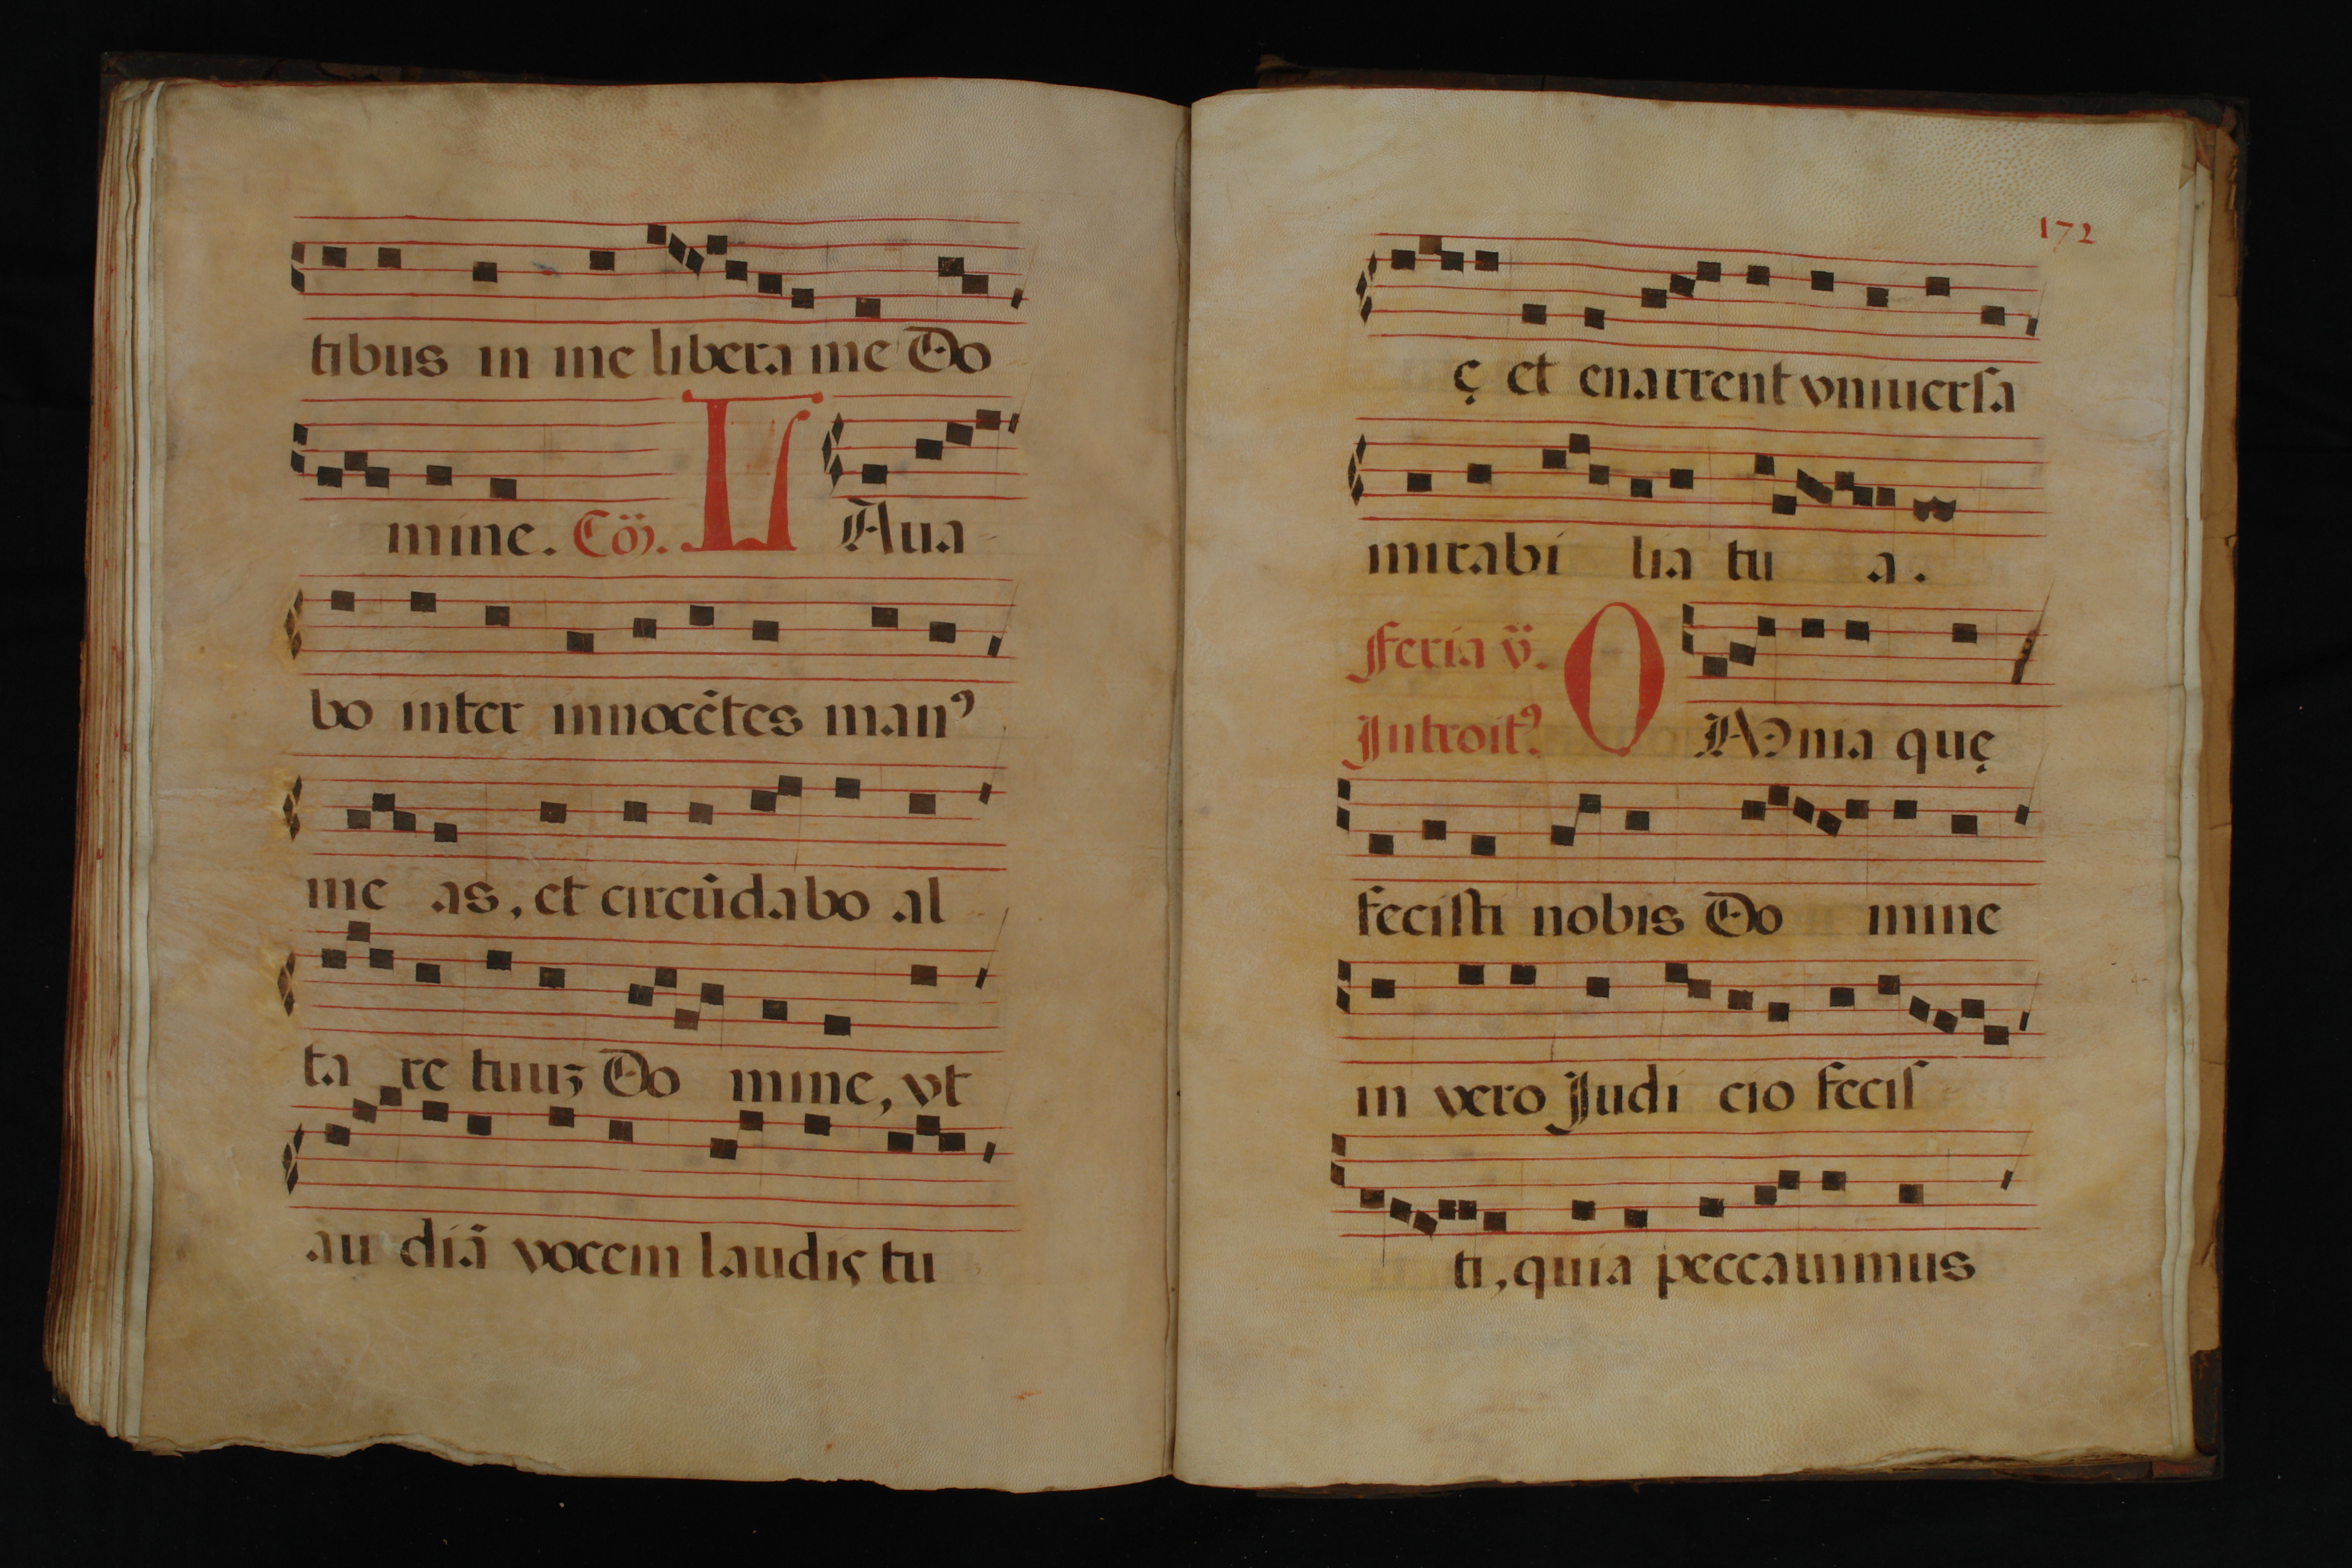 tibus in me libera me Do
mine. Cō. L Aua
bo inter innocētes manꝰ
me as, et circūdabo al
ta re tuuꝫ Do mine, vt
au diā vocem laudis tu
172
ę et enarrent vniuersa
mirabi lia tu a.
Feria v. O Mnia quę
Introitꝰ.
fecisti nobis Do mine
in vero Judi cio fecis
ti, quia peccauimus